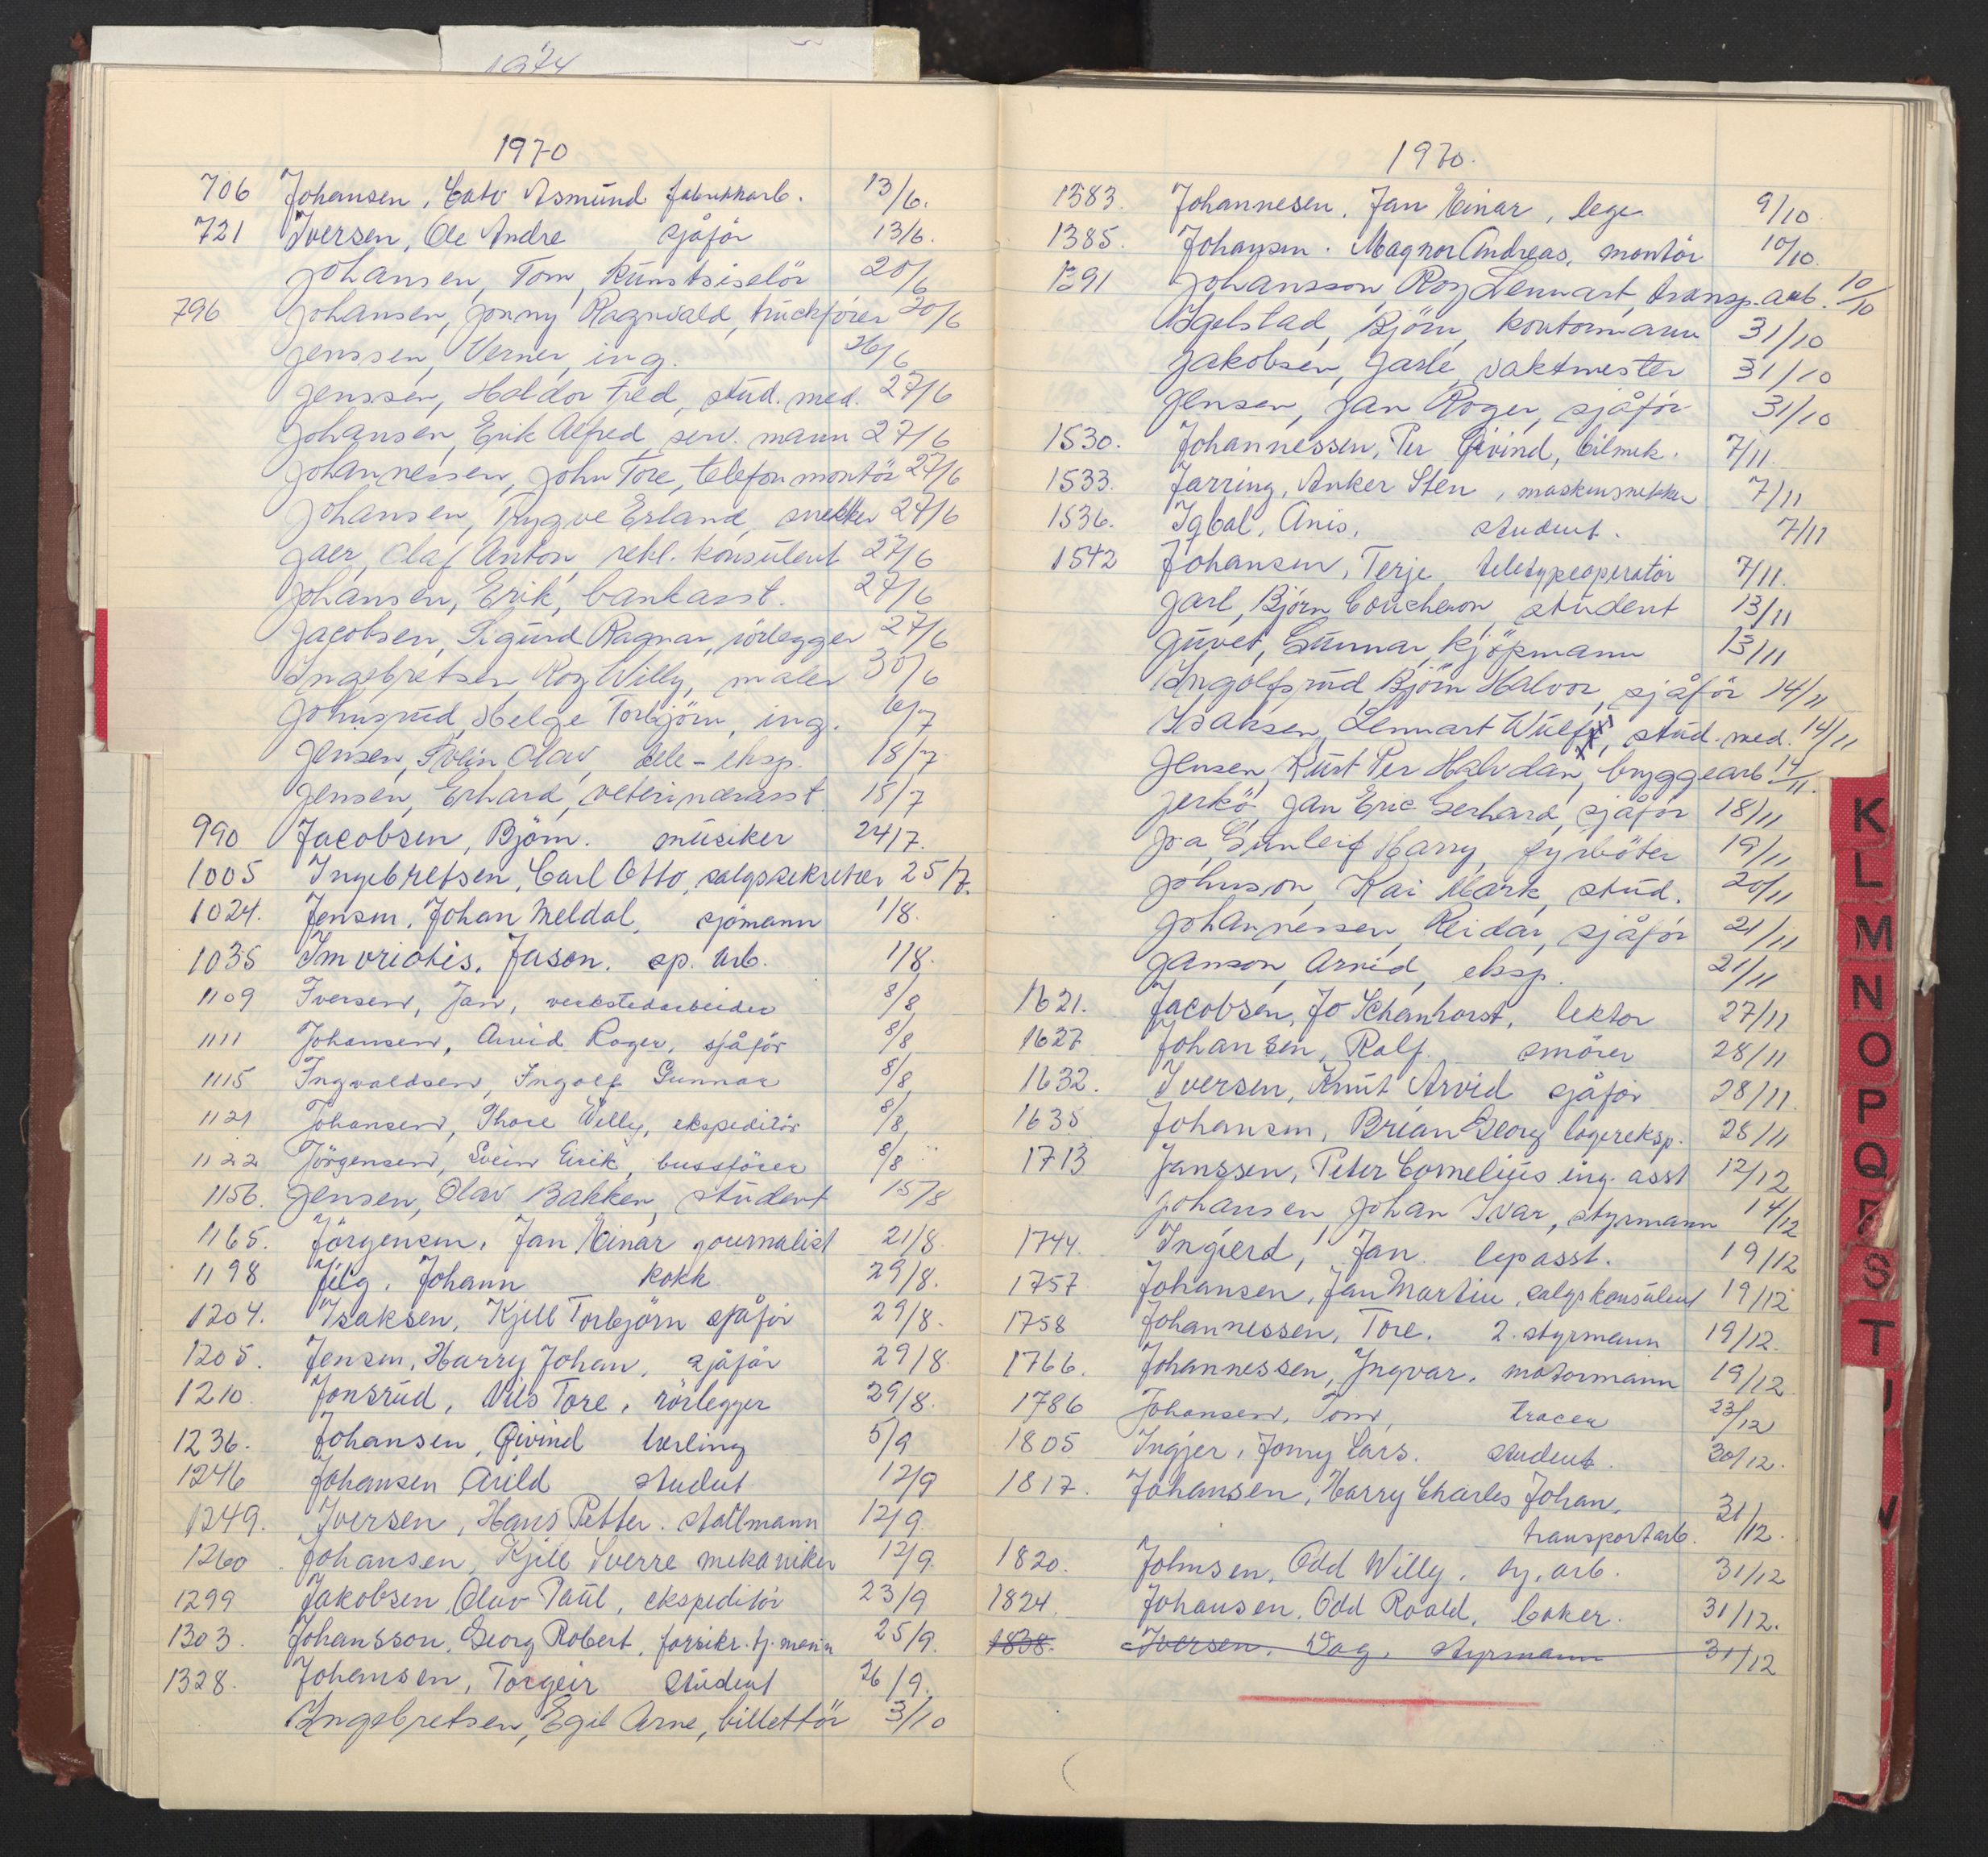 1974
1970
706 Johansen, Cato Asmund fabrikkarb. 13/6.
721 Iversen, Ole Andre sjåför 13/6.
Johansen, Tom, kunstsiselör 20/6
796 Johansen, Jonny Ragnvald, truckförer 20/6
Jenssen, Verner, ing. 26/6
Jenssen, Haldor Fred, stud. med. 27/6
Johansen, Erik Alfred, serv. mann 27/6
Johannessen, John Tore, telefonmontör 27/6
Johansen, Trygve Erland, snekker 27/6
Jaer, Olaf Anton, rekl. konsulent 27/6
Johansen, Erik, bankasst. 27/6
Jacobsen, Sigurd Ragnar, rörlegger 27/6
Ingebretsen, Roy Willy, maler 30/6
Johnsrud, Helge Torbjörn, ing. 6/7
Jensen, Olav, dele-eksp. 18/7
Jensen, Erhard, veterinærasst. 18/7
990 Jacobsen, Björn. musiker 24/7.
1005 Ingebretsen, Carl Otto, salgssekretær 25/7.
1024. Jensen, Johan Meldal, sjömann 1/8.
1035 Imvriotis, Jason. sp. arb. 1/8.
1109 Iversen, Jan, verkstedarbeider 8/8
1111 Johansen, Arvid Roger, sjåför 8/8
1115 Ingvaldsen, Ingolf Gunnar 8/8
1121 Johansen, Thore Willy, ekspeditör 8/8
1122 Jörgensen, Svein Erik, bussförer 8/8
1156. Jensen, Olav Bakken, student 15/8
1165. Jörgensen, Jan Einar journalist 21/8.
1198 Jilg, Johann kokk 29/8.
1204. Isaksen, Kjell Torbjörn sjåför 29/8.
1205. Jensen, Harry Johan, sjåför 29/8.
1210 Jonsrud, Nils Tore, rörlegger 29/8.
1236. Johansen, Öivind lærling 5/9
1246 Johansen Arild student 12/9
1249. Iversen, Hans Petter. stallmann 12/9.
1260. Johansen, Kjell Sverre mekaniker 12/9.
1299 Jakobsen, Olav Paul, ekspeditör 23/9
1303. Johansson, Georg Robert, forsikr. tj. mann 25/9.
1328. Johansen, Torgeir student 26/9.
Ingebretsen, Egil Arne, billettör 3/10
1970.
1383. Johannesen, Jan Einar, lege 9/10.
1385. Johansen. Magnor Andreas, montör 10/10.
1391 Johansson, Roy Lennart, transp.arb. 10/10
Igelstad, Björn, kontormann 31/10
Jakobsen, Jarle, vaktmester 31/10
Jensen, Jan Roger, sjåför 31/10
1530. Johannessen, Per Öivind, bilmek. 7/11.
1533. Jarring, Anker Sten, maskinsnekker 7/11
1536. Iqbal, Anis, student. 7/11
1542 Johansen, Terje, teletypeoperatör 7/11.
Jarl, Björn Coucheron, student 13/11
Juvet, Gunnar, kjöpmann 13/11
Ingolfsrud, Björn Halvor, sjåför 14/11
Isaksen, Lennart Wulff, stud. med. 14/11
Jensen, Kurt Per Halvdan, bryggearb 14/11.
Jerkö, Jan Eric Gerhard, sjåför 18/11
Joa, Gunleif Harry, fyrböter 19/11
Johnson, Kai Mark, stud. 20/11
Johannessen, Reidar, sjåför 21/11
Janson, Arvid, eksp. 21/11
1621. Jacobsen, Jo Schanhorst, lektor 27/11
1627 Johansen, Rolf. smörer 28/11
1632. Iversen, Knut Arvid sjåför 28/11.
1635 Johansen, Brian Georg lagereksp. 28/11
1713 Janssen, Peter Cornelius ing. asst 12/12
Johansen, Johan Ivar, styrmann 14/12
1744. Ingierd, Jan. lep asst. 19/12
1757 Johansen, Jan Martin, salgskonsulent 19/12
1758 Johannessen, Tore. 2. styrmann 19/12.
1766. Johannessen, Yngvar, motormann 19/12.
1786 Johansen, Tom, tracer 23/12
1805 Ingjer, Jonny Lars. student. 30/12.
1817. Johansen, Harry Charles Johan,
transportarb. 31/12.
1820. Johnsen, Odd Willy, hj. arb. 31/12
1824. Johansen, Odd Roald, baker. 31/12.
1838. Iversen, Dag, styrmann 31/12
K
L
M
N
O
P
Q
R
S
T